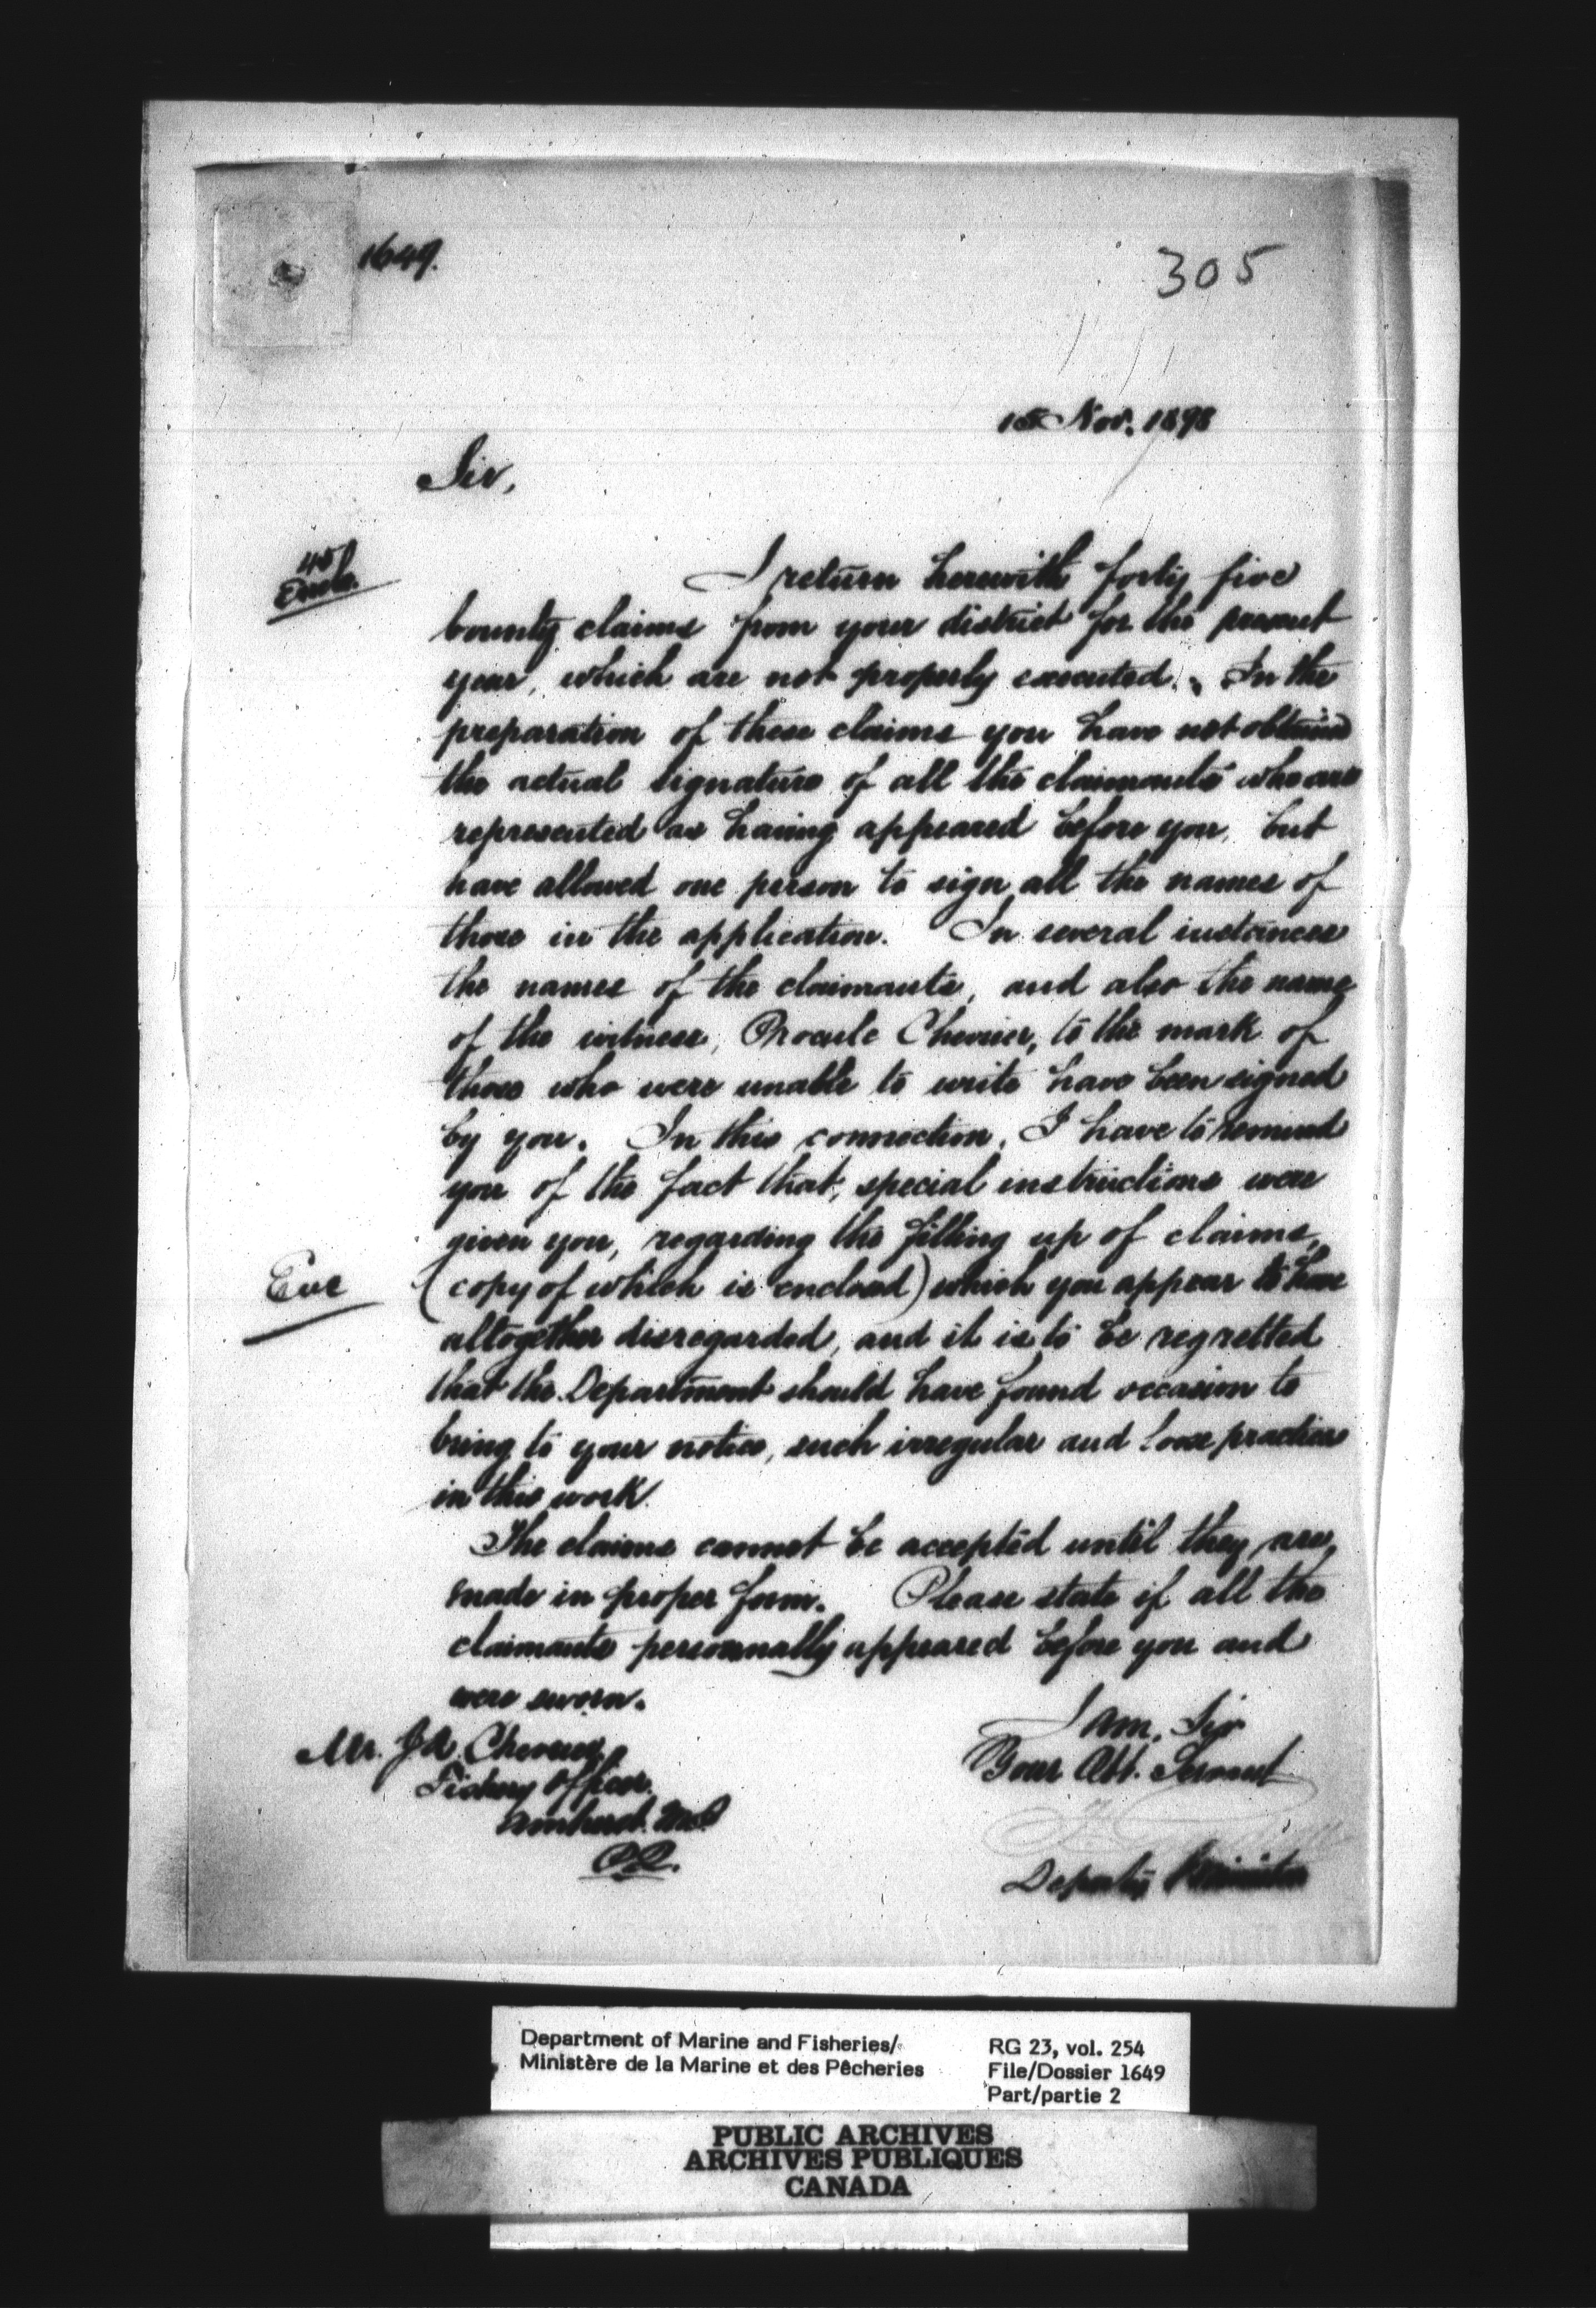 1649.
305
15 Nov. 1898
Sir,
45
Encls.
I return herewith forty five
bounty claims from your district for the present
year, which are not properly executed. In the
preparation of these claims you have not obtained
the actual signature of all the claimants who are
represented as having appeared before you, but
have allowed one person to sign all the names of
those in the application. In several instances
the names of the claimants, and also the name
of the witness, Procule Chevrier, to the mark of
those who were unable to write have been signed
by you. In this connection, I have to remind
you of the fact that, special instructions were
given you, regarding the filling up of claims,
(copy of which is enclosed) which you appear to have
altogether disregarded, and it is to be regretted
that the Department should have found occasion to
bring to your notice, such irregular and loose practices
in this work.
The claims cannot be accepted until they are
made in proper form. Please state if all the
claimants personnally appeared before you and
were sworn.
I am, Sir
Your Obt. Servant
Deputy Minister
Mr. J.A. Chevrier,
Fishery Officer.
Amherst. M.I.
P.Q.
Department of Marine and Fisheries/
Ministère de la Marine et des Pêcheries
RG 23, vol. 254
File/Dossier 1649
Part/partie 2
PUBLIC ARCHIVES
ARCHIVES PUBLIQUES
CANADA